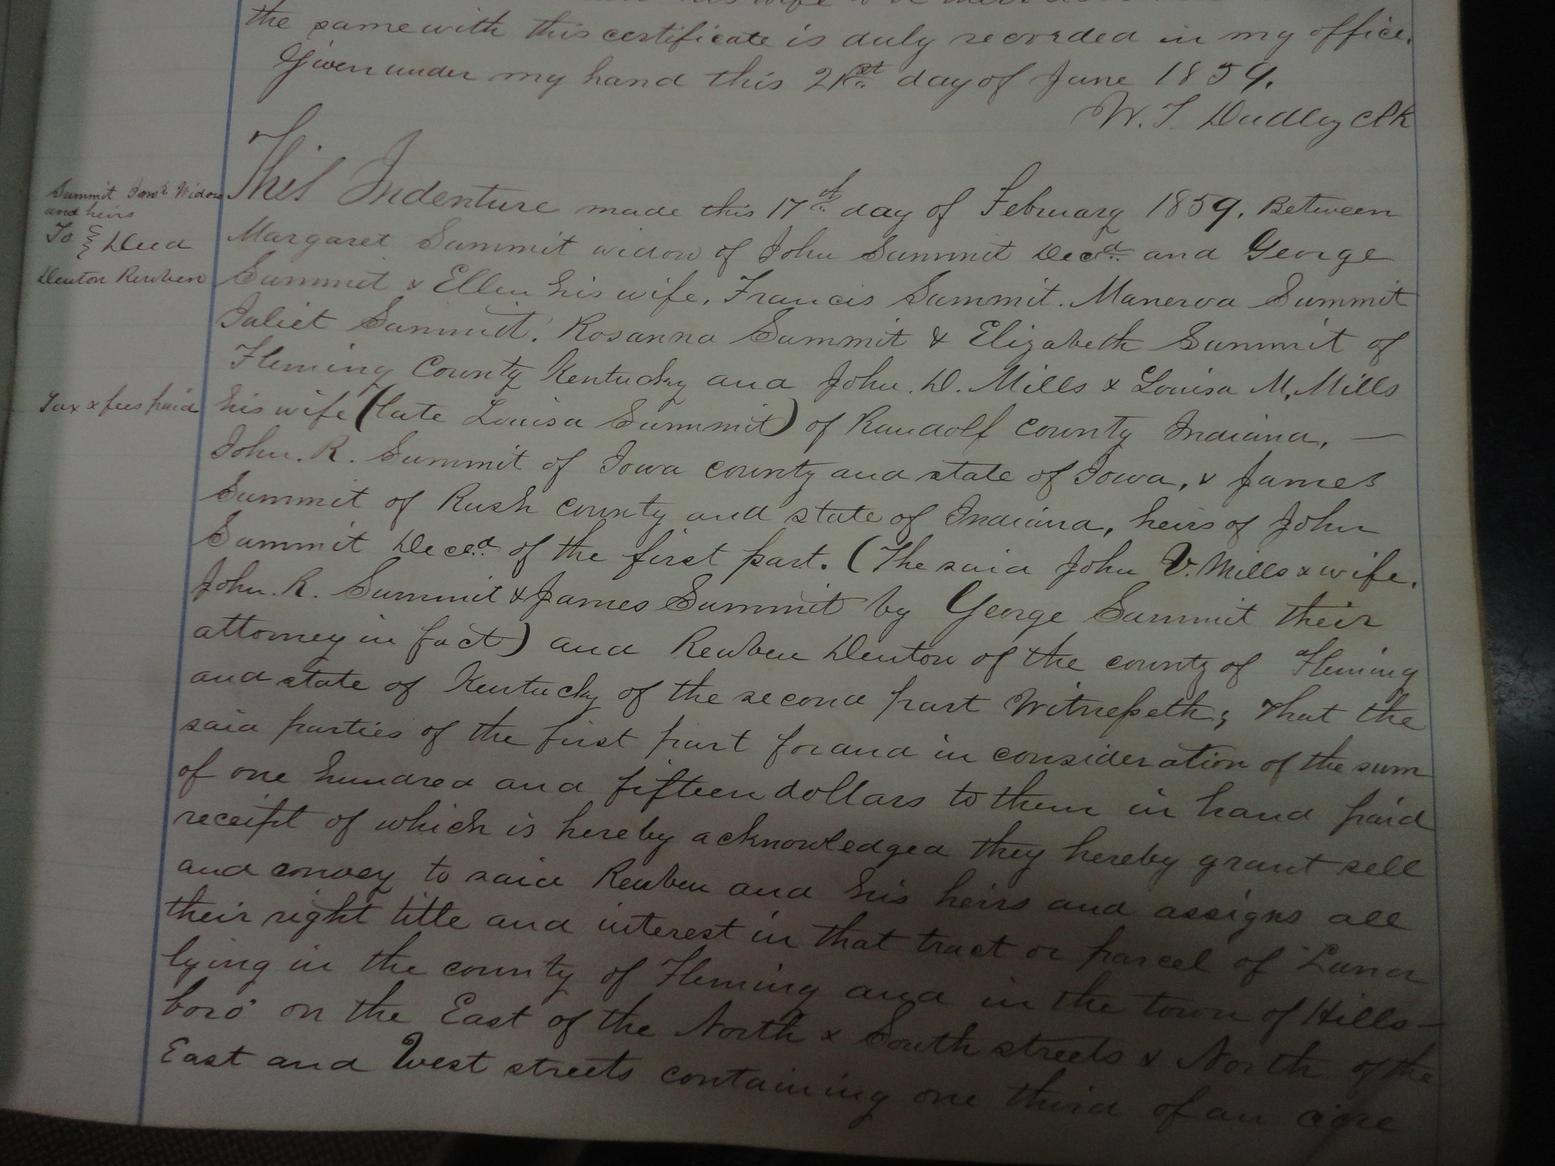 his wife
the same with this certificate is duly recorded in my office.
Given under my hand this 21st day of June 1859.
W. T. Dudley Clk
This Indenture made this 17th day of February 1859. Between
Summit Widow
and heirs
To } Deed
Denton Reuben
Margaret Summit widow of John Summit Decd. and George
Summit & Ellen his wife, Francis Summit. Manerva Summit
Juliet Summit. Rosanna Summit & Elizabeth Summit of
Fleming County Kentucky and John. D. Mills & Louisa M. Mills
Tax & fees paid
his wife (late Louisa Summit) of Randolf county Indiana, —
John. R. Summit of Iowa county and state of Iowa, & James
Summit of Rush county and state of Indiana, heirs of John
Summit Deced. of the first part. (The said John V. Mills & wife.
John. R. Summit & James Summit by George Summit their
attorney in fact) and Reuben Denton of the county of Fleming
and state of Kentucky of the second part Witnesseth; That the
said parties of the first part for and in consideration of the sum
of one hundred and fifteen dollars to them in hand paid
receipt of which is hereby acknowledged they hereby grant sell
and convey to said Reuben and his heirs and assigns all
their right title and interest in that tract or parcel of Land
lying in the county of Fleming and in the town of Hills-
boro' on the East of the North & South streets & North of the
East and West streets containing one third of an acre